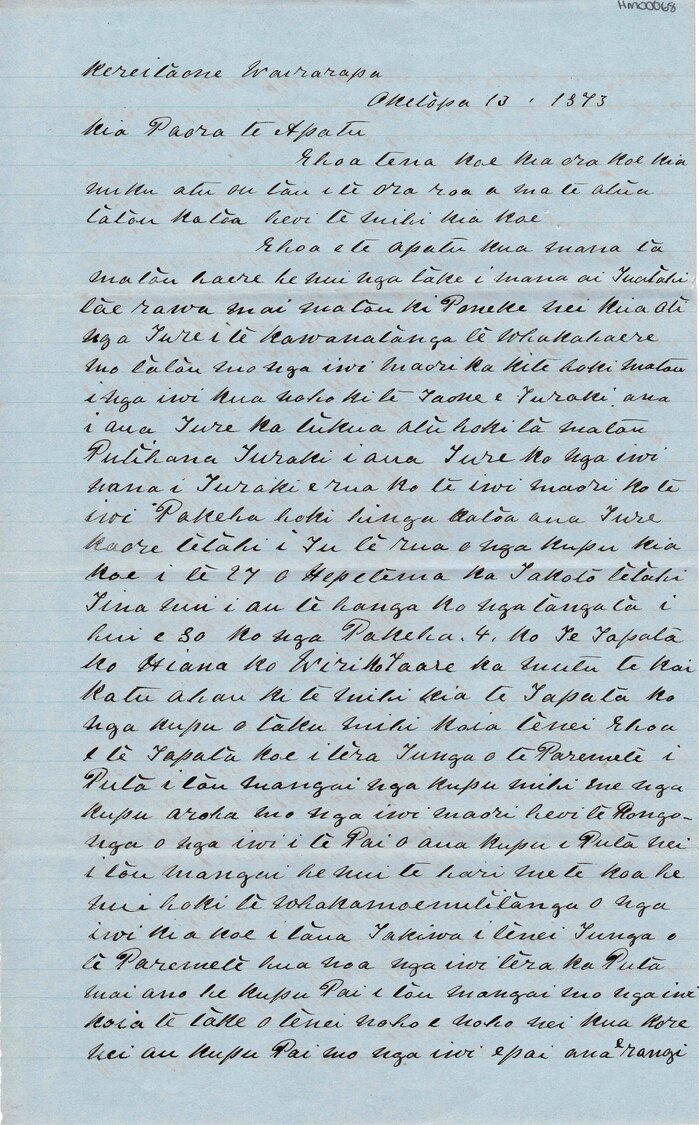 HM00068
Kereitaone Wairarapa
Oketopa 13, 1873
Kia Paora te Apatu
Ehoa tena koe kia ora koe kia
nuku atu ou tau i te ora roa a ma te atua
tatou katoa heoi te mihi kia koe
Ehoa ete apatu kua mana ta
matou haere he nui nga take i mana ai Tuatahi
tae rawa mai matou ki Poneke nei kua oti
nga Ture i te kawanatanga te whakahaere
mo tatou mo nga iwi maori ka kite hoki matou
i nga iwi kua noho ki te Taone e Turaki ana
i aua Ture ka tukua atu hoki ta matou
Pitihana Turaki i aua Ture ko nga iwi
nana i Turaki e rua ko te iwi maori ko te
iwi Pakeha hoki hinga katoa aua Ture
kaore tetahi i Tu te rua o nga kupu kia
koe i te 27 o Hepetema ka Takoto tetahi
Tina nui i au te hanga ko nga tangata i
hui e 30 ko nga Pakeha .4. ko Te Tapata
ko Hiana ko Wiriko Taare ka mutu te kai
ka tu ahau ki te mihi kia te Tapata ko
nga kupu o taku mihi koia tenei Ehoa
e te Tapata koe i tera Tunga o te Paremete i
Puta i tou mangai nga kupu mihi me nga
kupu aroha mo nga iwi maori heoi te Rongo-
nga o nga iwi i te Pai o aua kupu i Puta nei
i tou mangai he nui te hari me te koa he
nui hoki te whakamoemititanga o nga
iwi kia koe i taua Takiwa i tenei Tunga o
te Paremete hua noa nga iwi tera ka Puta
mai ano he kupu Pai i tou mangai mo nga iwi
koia te take o tenei noho e noho nei kua kore
nei au kupu Pai mo nga iwi e pai ana e rangi